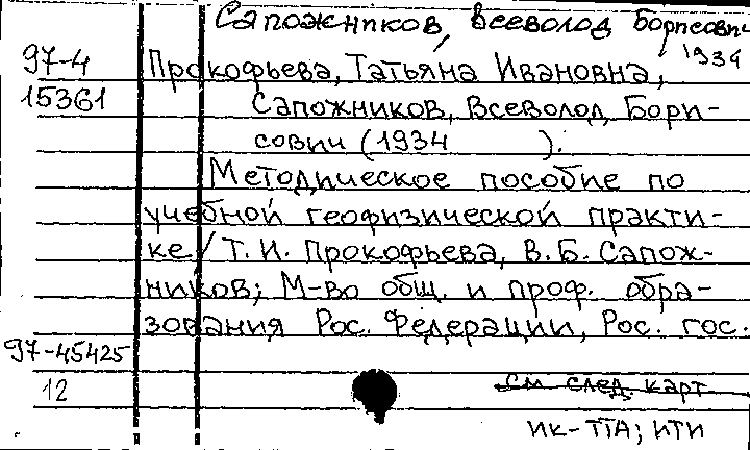 Сапожников, Всеволод Борисович
1934
97-4
Прокофьева, Татьяна Ивановна,
15361
Сапожников, Всеволод Бори-
сович (1934 ).
Методическое пособие по
учебной геофизической практи-
ке / Т. И. Прокофьева, В. Б. Сапож-
ников; М-во общ. и проф. обра-
зования Рос. Федерации, Рос. гос.
97-45425
12
см след. карт
ИК-ТПА; ИТИ